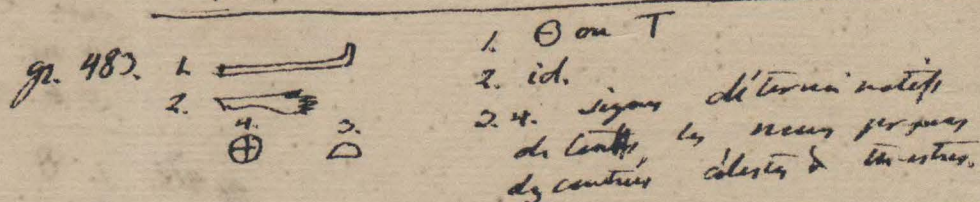 gr. 483. 1.
2.
4. 3.
1. Θ ou T
2. id.
3. 4. signes déterminatifs
de tous les noms propres
de contrées célestes & terrestres.